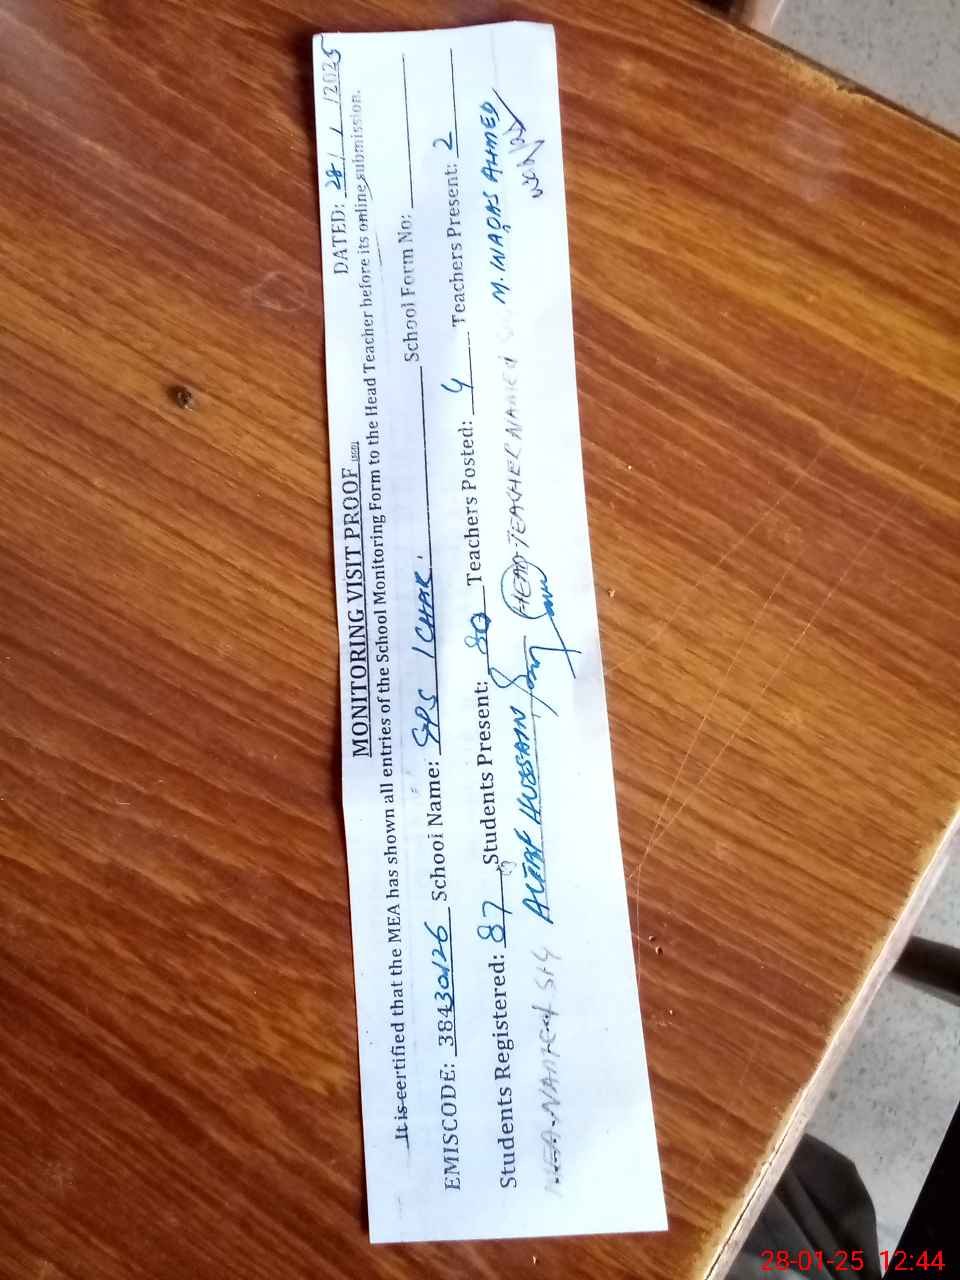 DATED: 28/1/2025
MONITORING VISIT PROOF
It is certified that the MEA has shown all entries of the School Monitoring Form to the Head Teacher before its online submission.
EMISCODE: 38430126 School Name: GPS 1 CHAK. School Form No:
Students Registered: 87 Students Present: 80 Teachers Posted: 4 Teachers Present: 2
MEA. NAME & SIG ALTAF HUSSAIN HEAD TEACHER NAME & M. WAQAS AHMED
28-01-25 12:44